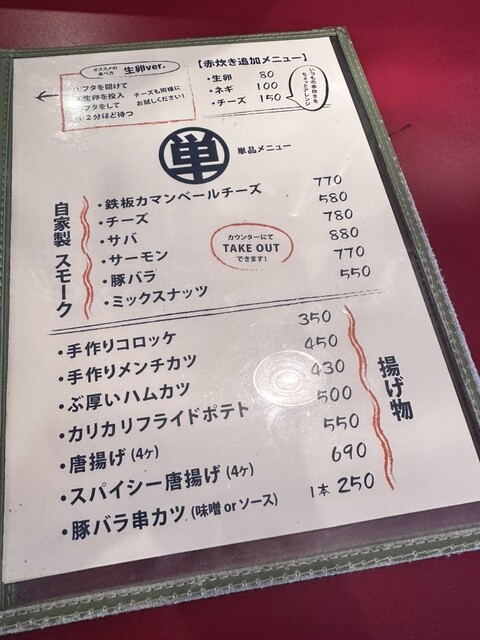 オススメの
食べ方
生卵ver.
①フタを開けて
②生卵を投入
③フタをして
④2分ほど待つ
チーズも同様に
お試しください!
【赤炊き追加メニュー】
・生卵 80
・ネギ 100
・チーズ 150
いつもの赤炊きを
ちょっとアレンジ
単
単品メニュー
自家製 スモーク
・鉄板カマンベールチーズ 770
・チーズ 580
・サバ 780
・サーモン 880
・豚バラ 770
・ミックスナッツ 550
カウンターにて
TAKE OUT
できます!
揚げ物
・手作りコロッケ 350
・手作りメンチカツ 450
・ぶ厚いハムカツ 430
・カリカリフライドポテト 500
・唐揚げ (4ケ) 550
・スパイシー唐揚げ (4ケ) 690
・豚バラ串カツ (味噌 or ソース) 1本 250